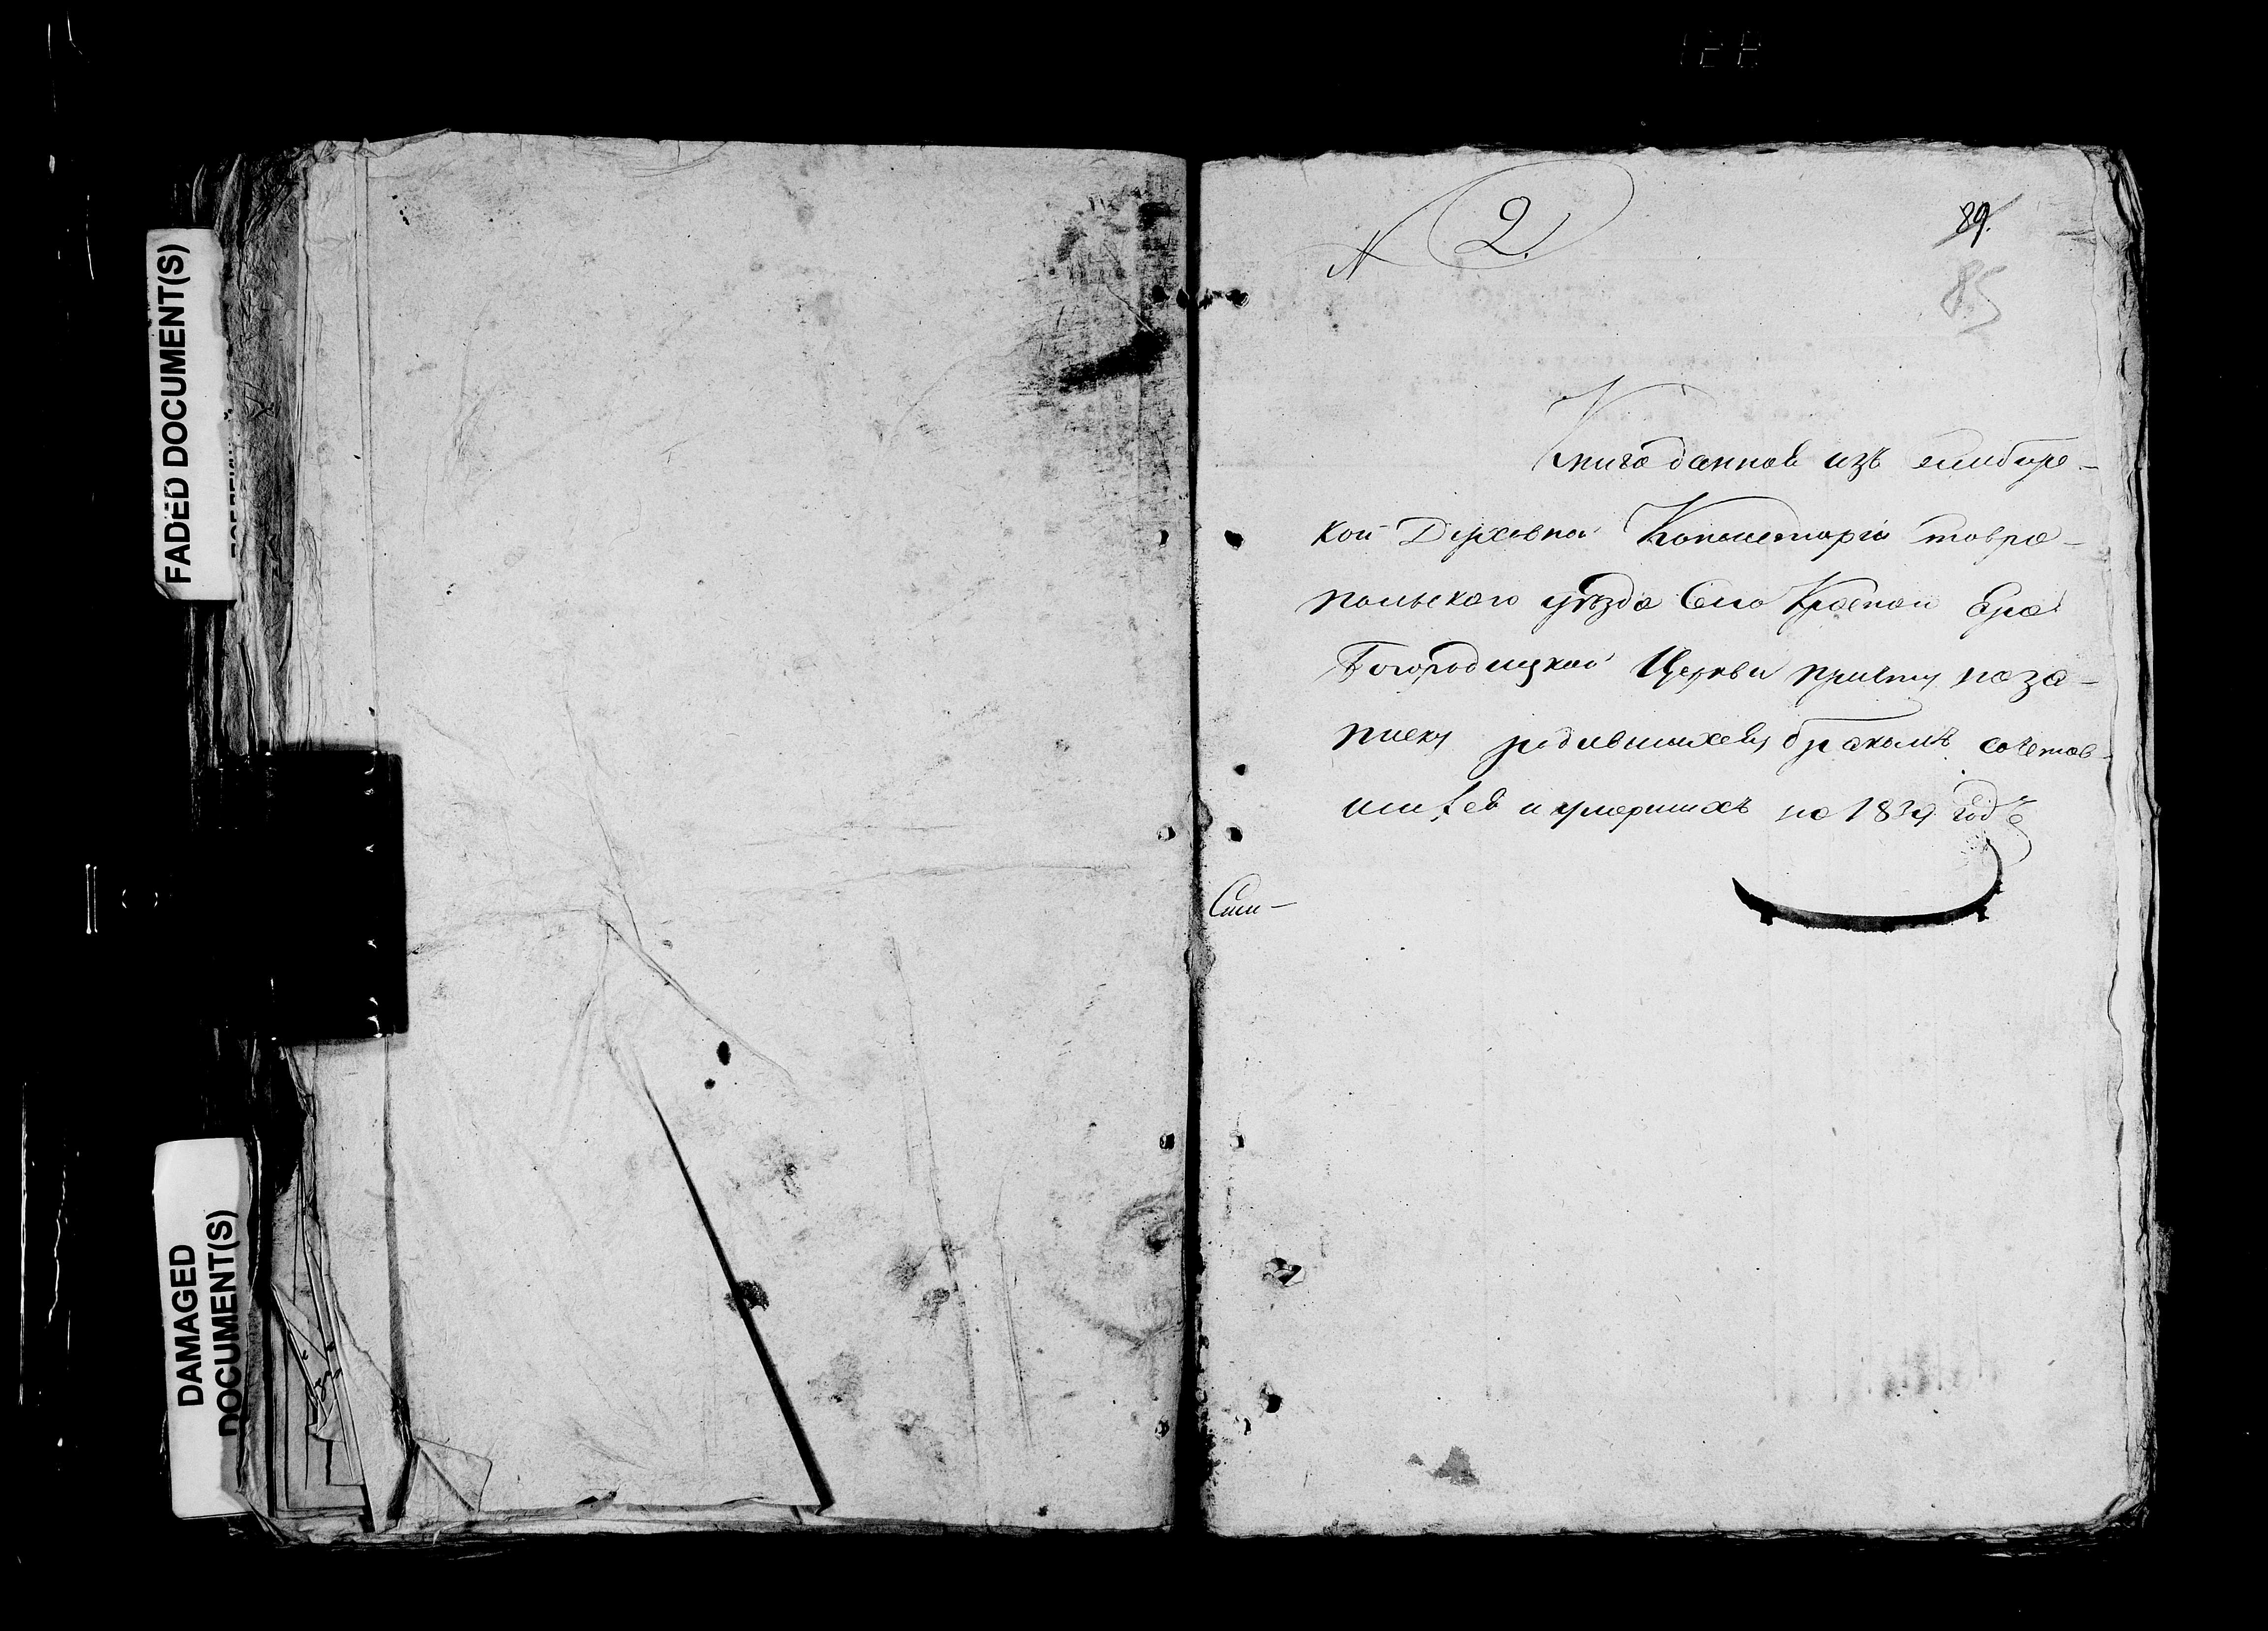 FADED DOCUMENT(S)
DAMAGED
DOCUMENT(S)
N 2.
89.
85
Книга данная изъ симбирс-
кой Духовной Консисторіи ставро-
польскаго уѣзда Села
Богородицкой Церкви причту на за-
писку родившихся бракомъ сочетав-
шихся и умершихъ на 1839 годъ